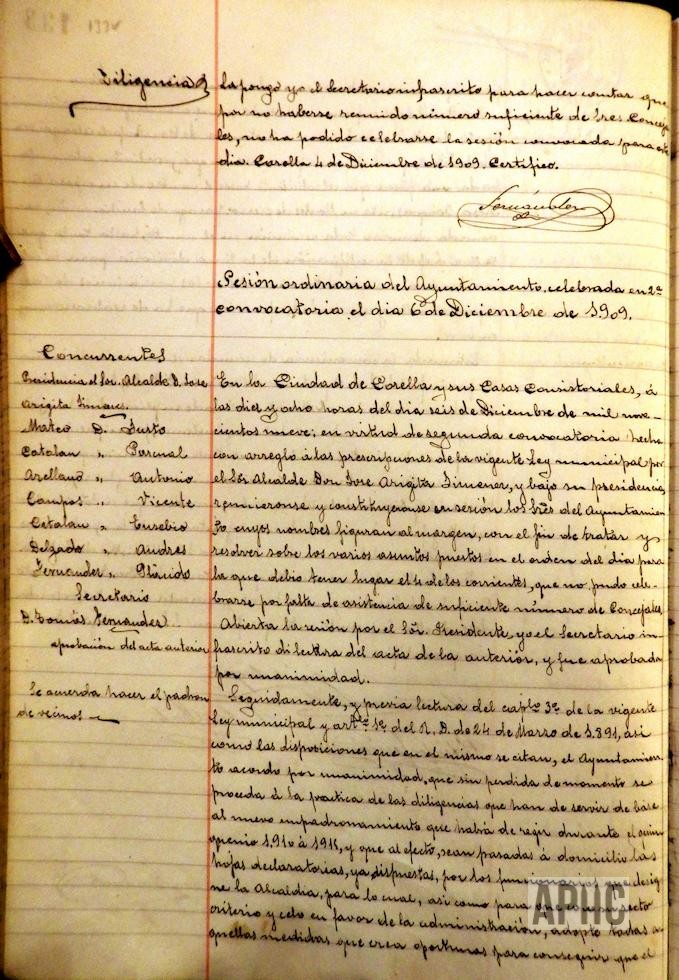 133v
Diligencia
La pongo yo el Secretario infrascrito para hacer constar que
por no haberse reunido número suficiente de Sres Conceja-
les, no ha podido celebrarse la sesión convocada para este
dia. Corella 4 de Diciembre de 1909. Certifico.
Fernández
Sesión ordinaria del Ayuntamiento, celebrada en 2ª
convocatoria el dia 6 de Diciembre de 1909.
Concurrentes
Presidencia el Sor. Alcalde D. Jose
Arigita Jimenez
Mateo D. Justo
Catalan " Pascual
Arellano " Antonio
Campos " Vicente
Catalan " Eusebio
Delgado " Andres
Fernandez " Plácido
Secretario
D. Tomás Fernandez
aprobación del acta anterior
Se acuerda hacer el padron
de vecinos
En la Ciudad de Corella y sus Casas Consistoriales, á
las diez y ocho horas del dia seis de Diciembre de mil nove-
cientos nueve; en virtud de segunda convocatoria hecha
con arreglo á las prescripciones de la vigente Ley municipal por
el Sor Alcalde Don Jose Arigita Jimenez, y bajo su presidencia,
reunieronse y constituyeronse en sesión los Sres del Ayuntamien-
to cuyos nombres figuran al margen, con el fin de tratar y
resolver sobre los varios asuntos puestos en el orden del dia para
la que debio tener lugar el 4 de los corrientes, que no pudo cele-
brarse por falta de asistencia de suficiente número de Concejales.
Abierta la sesión por el Sor. Presidente, yo el Secretario in-
frascrito di lectura del acta de la anterior, y fue aprobada
por unanimidad.
Seguidamente, y previa lectura del capto 3º de la vigente
Ley municipal y artclo 1º del R. D. de 24 de Marzo de 1.891, asi
como las disposiciones que en el mismo se citan, el Ayuntamien-
to acordo por unanimidad, que sin perdida de momento se
proceda á la practica de las diligencias que han de servir de base
al nuevo empadronamiento que habrá de regir durante el quin-
quenio 1.910 á 1915, y que al efecto, sean pasadas á domicilio las
hojas declaratorias, ya dispuestas, por los funcionarios que desig-
ne la Alcaldia, para lo cual, asi como para que con su recto
criterio y celo en favor de la administración, adopte todas a-
quellas medidas que crea oportunas para conseguir que el
APHC